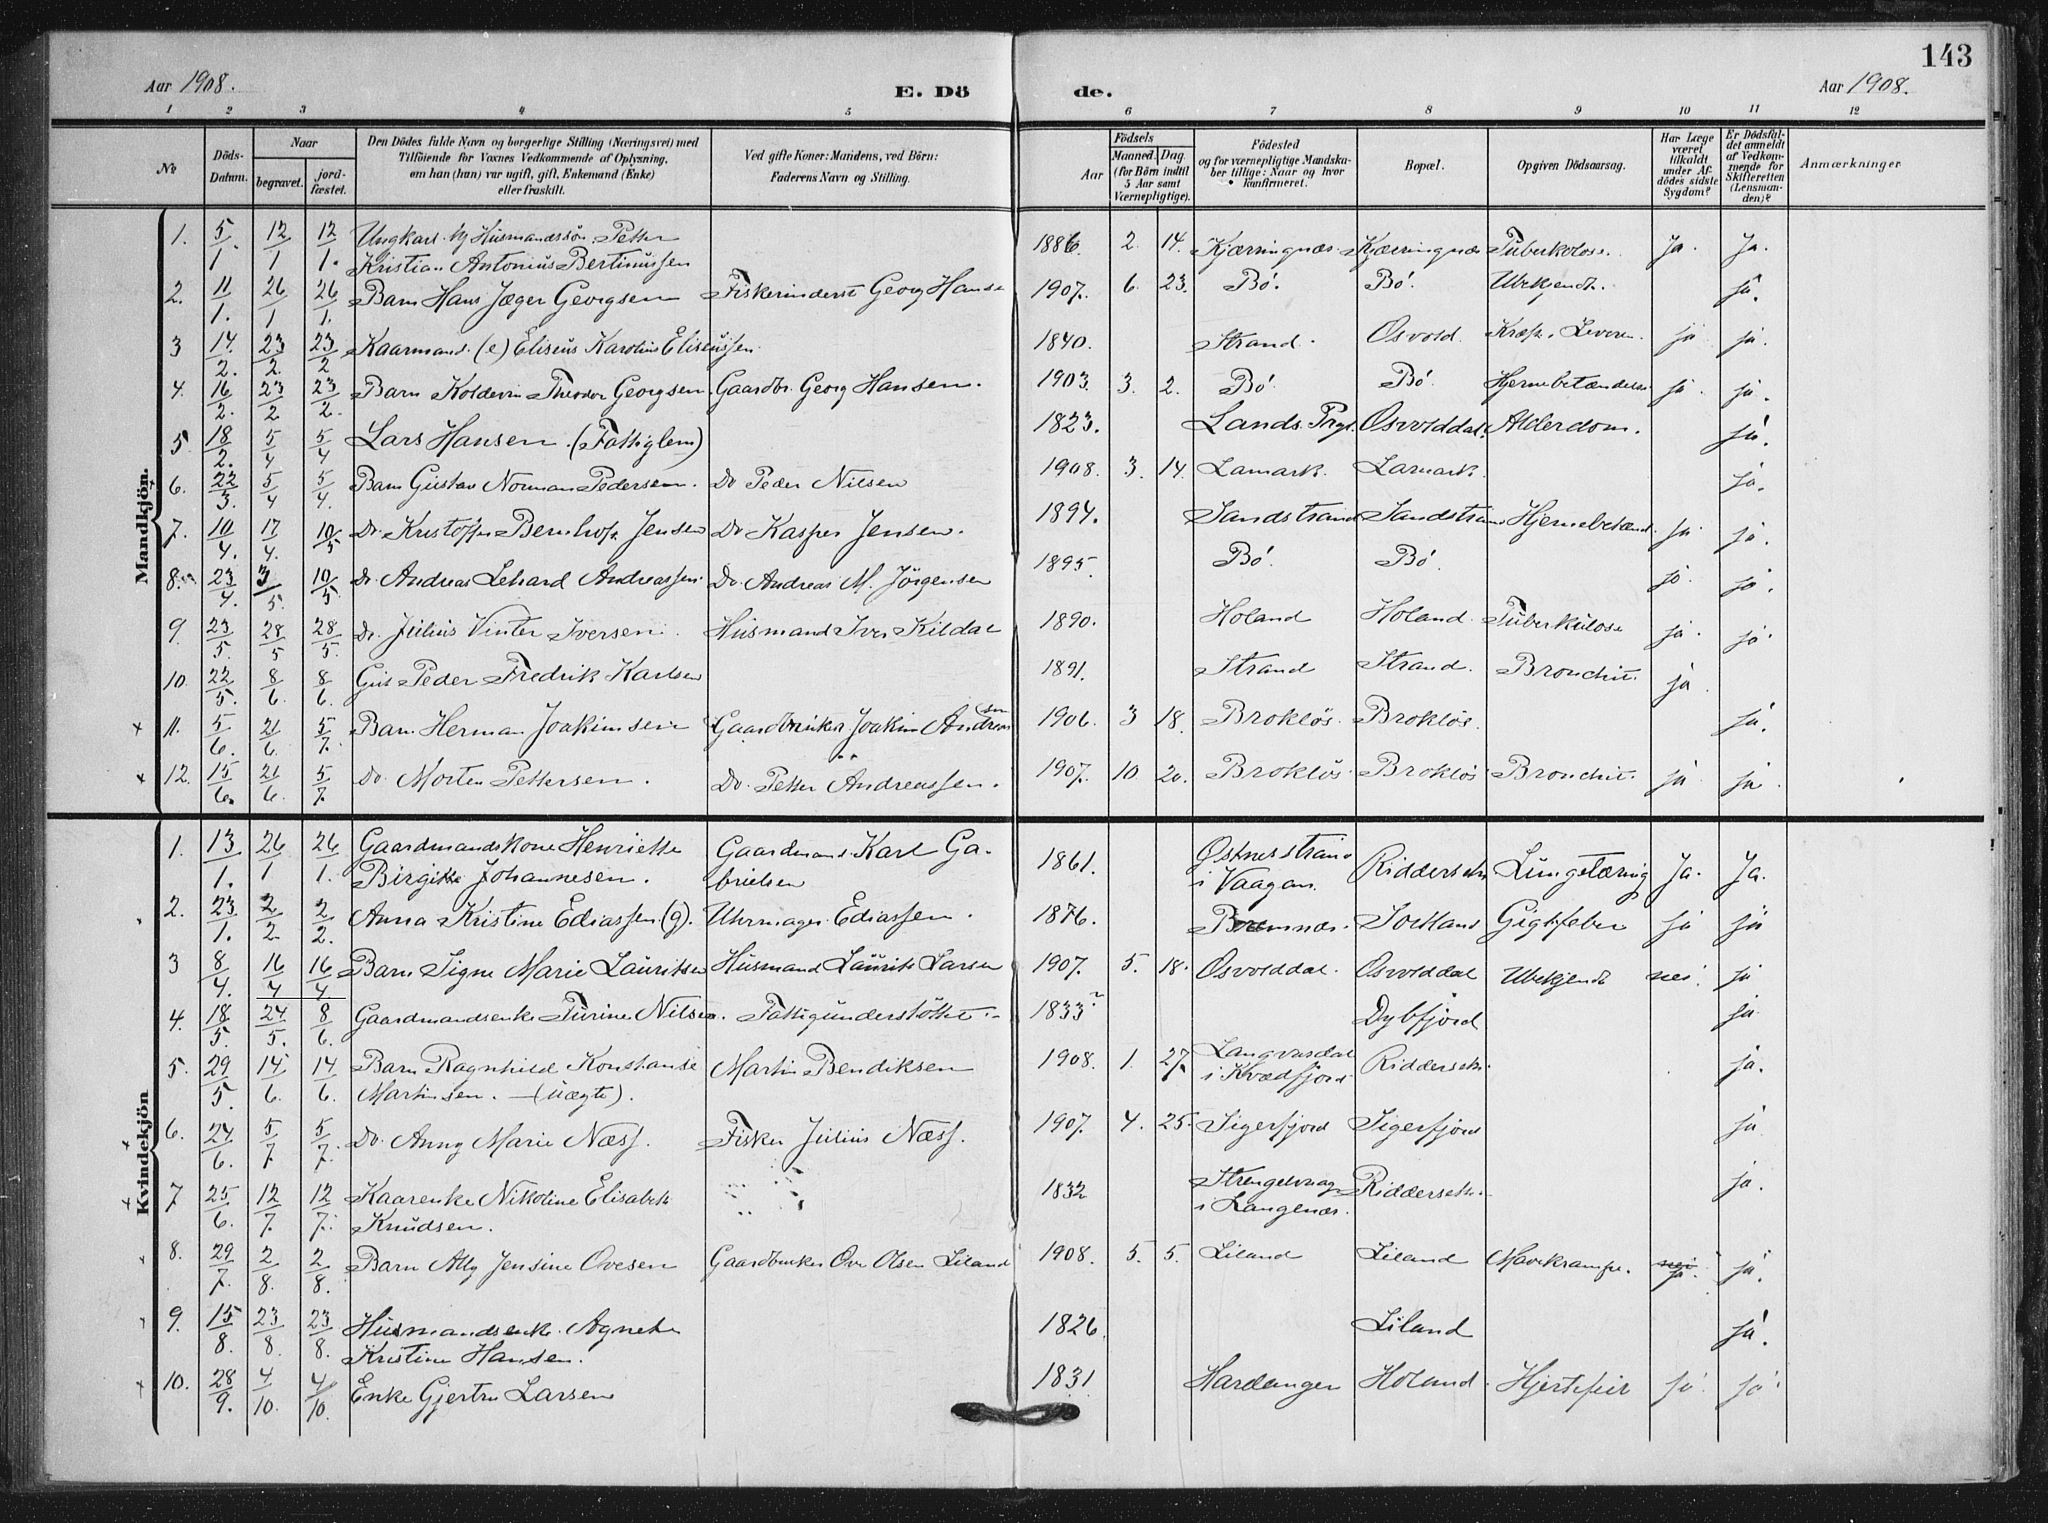 143
Aar 1908. E. Dö de. Aar 1908.
1 2 3 4 5 6 7 8 9 10 11 12
No. Döds-Datum. Naar begravet. jord-fæstet. Den Dödes fulde Navn og borgerlige Stilling (Næringsvei) med Tilföiende for Voxnes Vedkommende af Oplysning, om han (hun) var ugift, gift, Enkemand (Enke) eller fraskilt. Ved gifte Koner: Mandens, ved Börn: Faderens Navn og Stilling. Födsels Aar Maaned. Dag. (for Börn indtil 5 Aar samt Værnepligtige). Födested og for værnepligtige Mandska-ber tillige: Naar og hvor konfirmeret. Bopæl. Opgiven Dödsaarsag. Har Læge været tilkaldt under Af-dödes sidste Sygdom? Er Dödsfal-det anmeldt af Vedkom-mende for Skifteretten (Lensman-den)? Anmærkninger
Mandkjön.
1. 5/1 12/1 12/1. Ungkarl og Husmandssön Petter Kristian Antonius Bertinussen 1886 2. 14. Kjærringnæs Kjærringnæs Tuberkolose. Ja. Ja.
2. 11/1. 26/1 26/1. Barn Hans Jæger Georgsen Fiskerinderst Georg Hansen 1907. 6. 23. Bö. Bö. Ubekjendt. ja.
3 14/2. 23/2. 23/2 Kaarmand (e) Eliseus Karolius Eliseussen. 1840. Strand. Osvold. Kræft i Leveren. ja ja.
4. 16/2. 23/2 23/2. Barn Koldevin Theodor Georgsen. Gaardbr. Georg Hansen. 1903. 3. 2. Bö. Bö. Hjernebetændelse ja. ja.
5 18/2. 5/4 5/4 Lars Hansen. (Fattiglem) 1823. Lands Prgl. Osvolddal. Alderdom. ja.
6. 22/3. 5/4 5/4. Barn Gustav Norman Pedersen. Do Peder Nilsen 1908. 3. 14. Lamark. Lamark. ja.
7. 10/4. 17/4. 10/5 Do. Kristoffer Bernhoft Jensen Do. Kasper Jensen. 1894. Sandstrand Sandstrand Hjernebetænd. ja ja.
8. 23/4. 3/5. 10/5 Do. Andreas Lehard Andreassen Do. Andreas M. Jörgensen 1895. Bö. Bö. ja. ja.
9. 23/5. 28/5 28/5. Do. Julius Vinter Iversen. Husmand Iver Kildal 1890. Holand Holand. Tuberkulose ja. ja.
10. 22/5. 8/6. 8/6. Gut Peder Fredrik Karlsen 1891. Strand Strand. Bronchit. ja
11. 5/6. 21/6. 5/7. Barn Herman Joakimsen Gaardbruker Joakim Andreassen 1906. 3 18. Broklös. Broklös. ja.
12. 15/6. 21/6. 5/7. Do. Morten Pettersen. Do. Petter Andreassen. 1907. 10. 20. Broklös. Broklös Bronchit. ja ja.
Kvindekjön
1. 13/1. 26/1 26/1. Gaardmandskone Henriette Birgitte Johannesen. Gaardmand Karl Ga-brielsen 1861. Østnesstrand i Vaagan. Riddersetr. Lungetæring Ja. Ja.
2. 23/1. 2/2. 2/2. Anna Kristine Ediassen (g). Uhrmager Ediassen. 1876. Bremnæs. Sortland Gigtfeber ja ja
3 8/4. 16/4 16/4 Barn Signe Marie Lauritsen Husmand Laurits Larsen 1907. 5. 18. Osvolddal. Osvolddal Ubekjendt nei. ja
4. 18/5. 24/5. 8/6. Gaardmandsenke Turine Nilsen. Fattigunderstöttet. 1833? Dybfjord ja.
5. 29/5. 14/6. 14/6. Barn Ragnhild Konstanse Martinsen. — (uægte). Martin Bendiksen 1908. 1. 27. Langvasdal i Kvædfjord. Riddersetr. ja.
6. 24/6. 5/7. 5/7. Do. Anny Marie Næss. Fisker Julius Næss. 1907. 4. 25. Sigerfjord Sigerfjord ja.
7 25/6. 12/7. 12/7. Kaarenke Nikoline Elisabeth Knudsen. 1832 Strengelvaag i Langenæs. Riddersetr. ja.
8. 29/7. 2/8. 2/8. Barn Ally Jensine Ovesen Gaardbruker Ove Olsen Liland 1908. 5. 5. Liland Liland Mavekrampe. nei ja. ja.
9. 15/8. 23/8. 23/8. Husmandsenke Agnete Kristine Hansen. 1826. Liland ja.
10. 28/9. 4/10. 4/10. Enke Gjertru Larsen 1831. Hardanger Holand. Hjertefeil ja. ja.